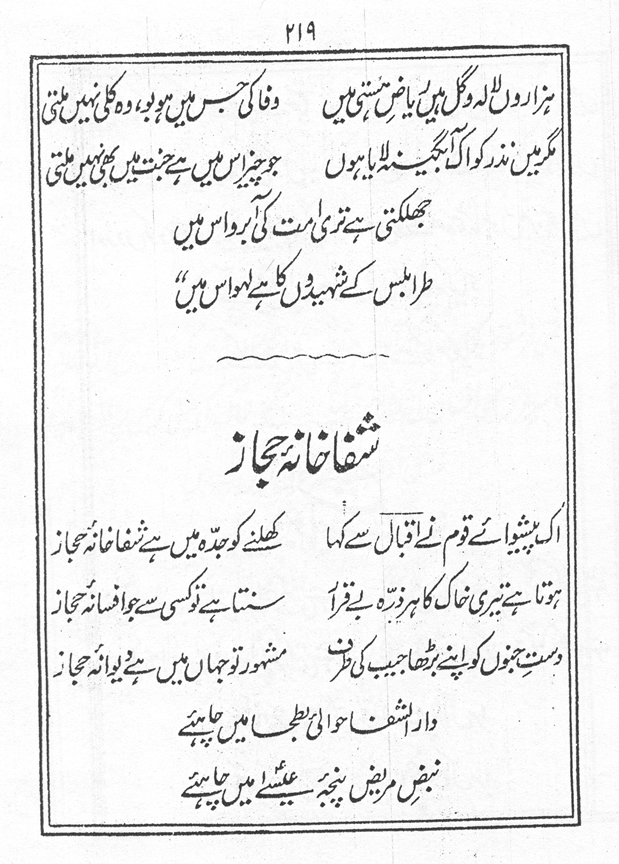 ۲۱۹
ہزاروں لالہ و گل ہیں ریاضِ ہستی میں وفا کی جس میں ہو بو، وہ کلی نہیں ملتی
مگر میں نذر کو اک آبگینہ لایا ہوں جو چیز اس میں ہے جنت میں بھی نہیں ملتی
جھلکتی ہے تری امت کی آبرو اس میں
طرابلس کے شہیدوں کا ہے لہو اس میں“
شفاخانۂ حجاز
اک پیشوائے قوم نے اقبالؔ سے کہا کھلنے کو جدّہ میں ہے شفاخانۂ حجاز
ہوتا ہے تیری خاک کا ہر ذرّہ بے قرار سنتا ہے تو کسی سے جو افسانۂ حجاز
دستِ جنوں کو اپنے بڑھا جیب کی طرف مشہور تو جہاں میں ہے دیوانۂ حجاز
دار الشفا حوالیٔ بطحا میں چاہئے
نبضِ مریض پنجۂ عیسٰے میں چاہئے